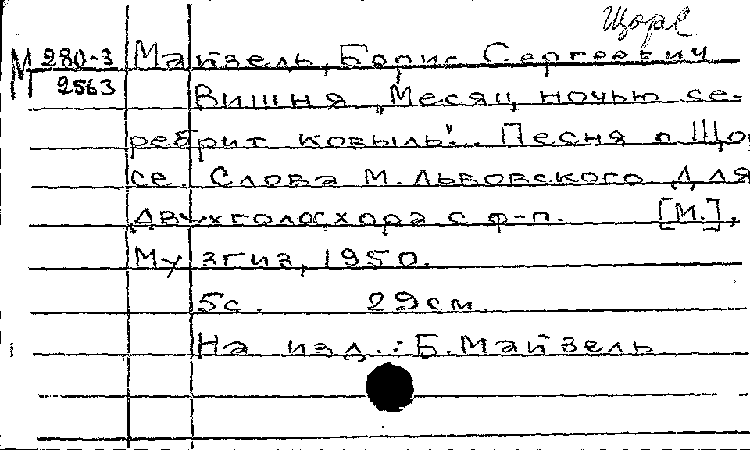 Щорс
М 280-3
2563
Майзель, Борис Сергеевич
Вишня „Месяц ночью се-
ребрит ковыль"... Песня о Щор
се. Слова М. Львовского Для
двухголос хора с ф-п. [М.],
Музгиз, 1950.
5с. 29см
На изд.: Б. Майзель